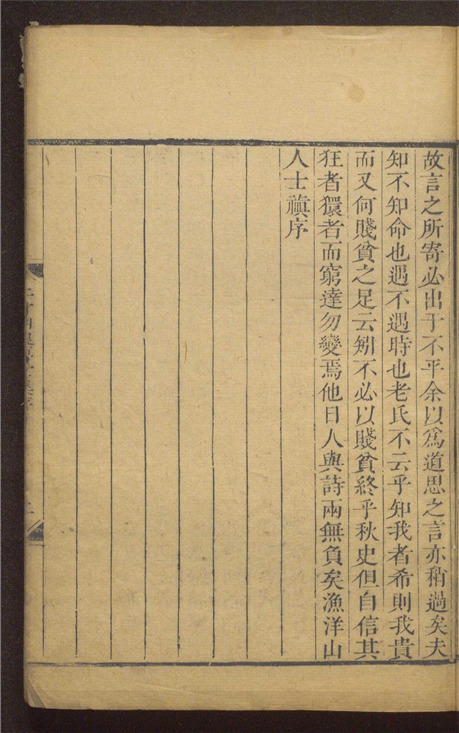 故言之所寄必出于不平余以為道思之言亦稍過矣夫
知不知命也遇不遇時也老氏不云乎知我者希則我貴
而又何賤貧之足云矧不必以賤貧終乎秋史但自信其
狂者獧者而窮達勿變焉他日人與詩兩無負矣漁洋山
人士禛序